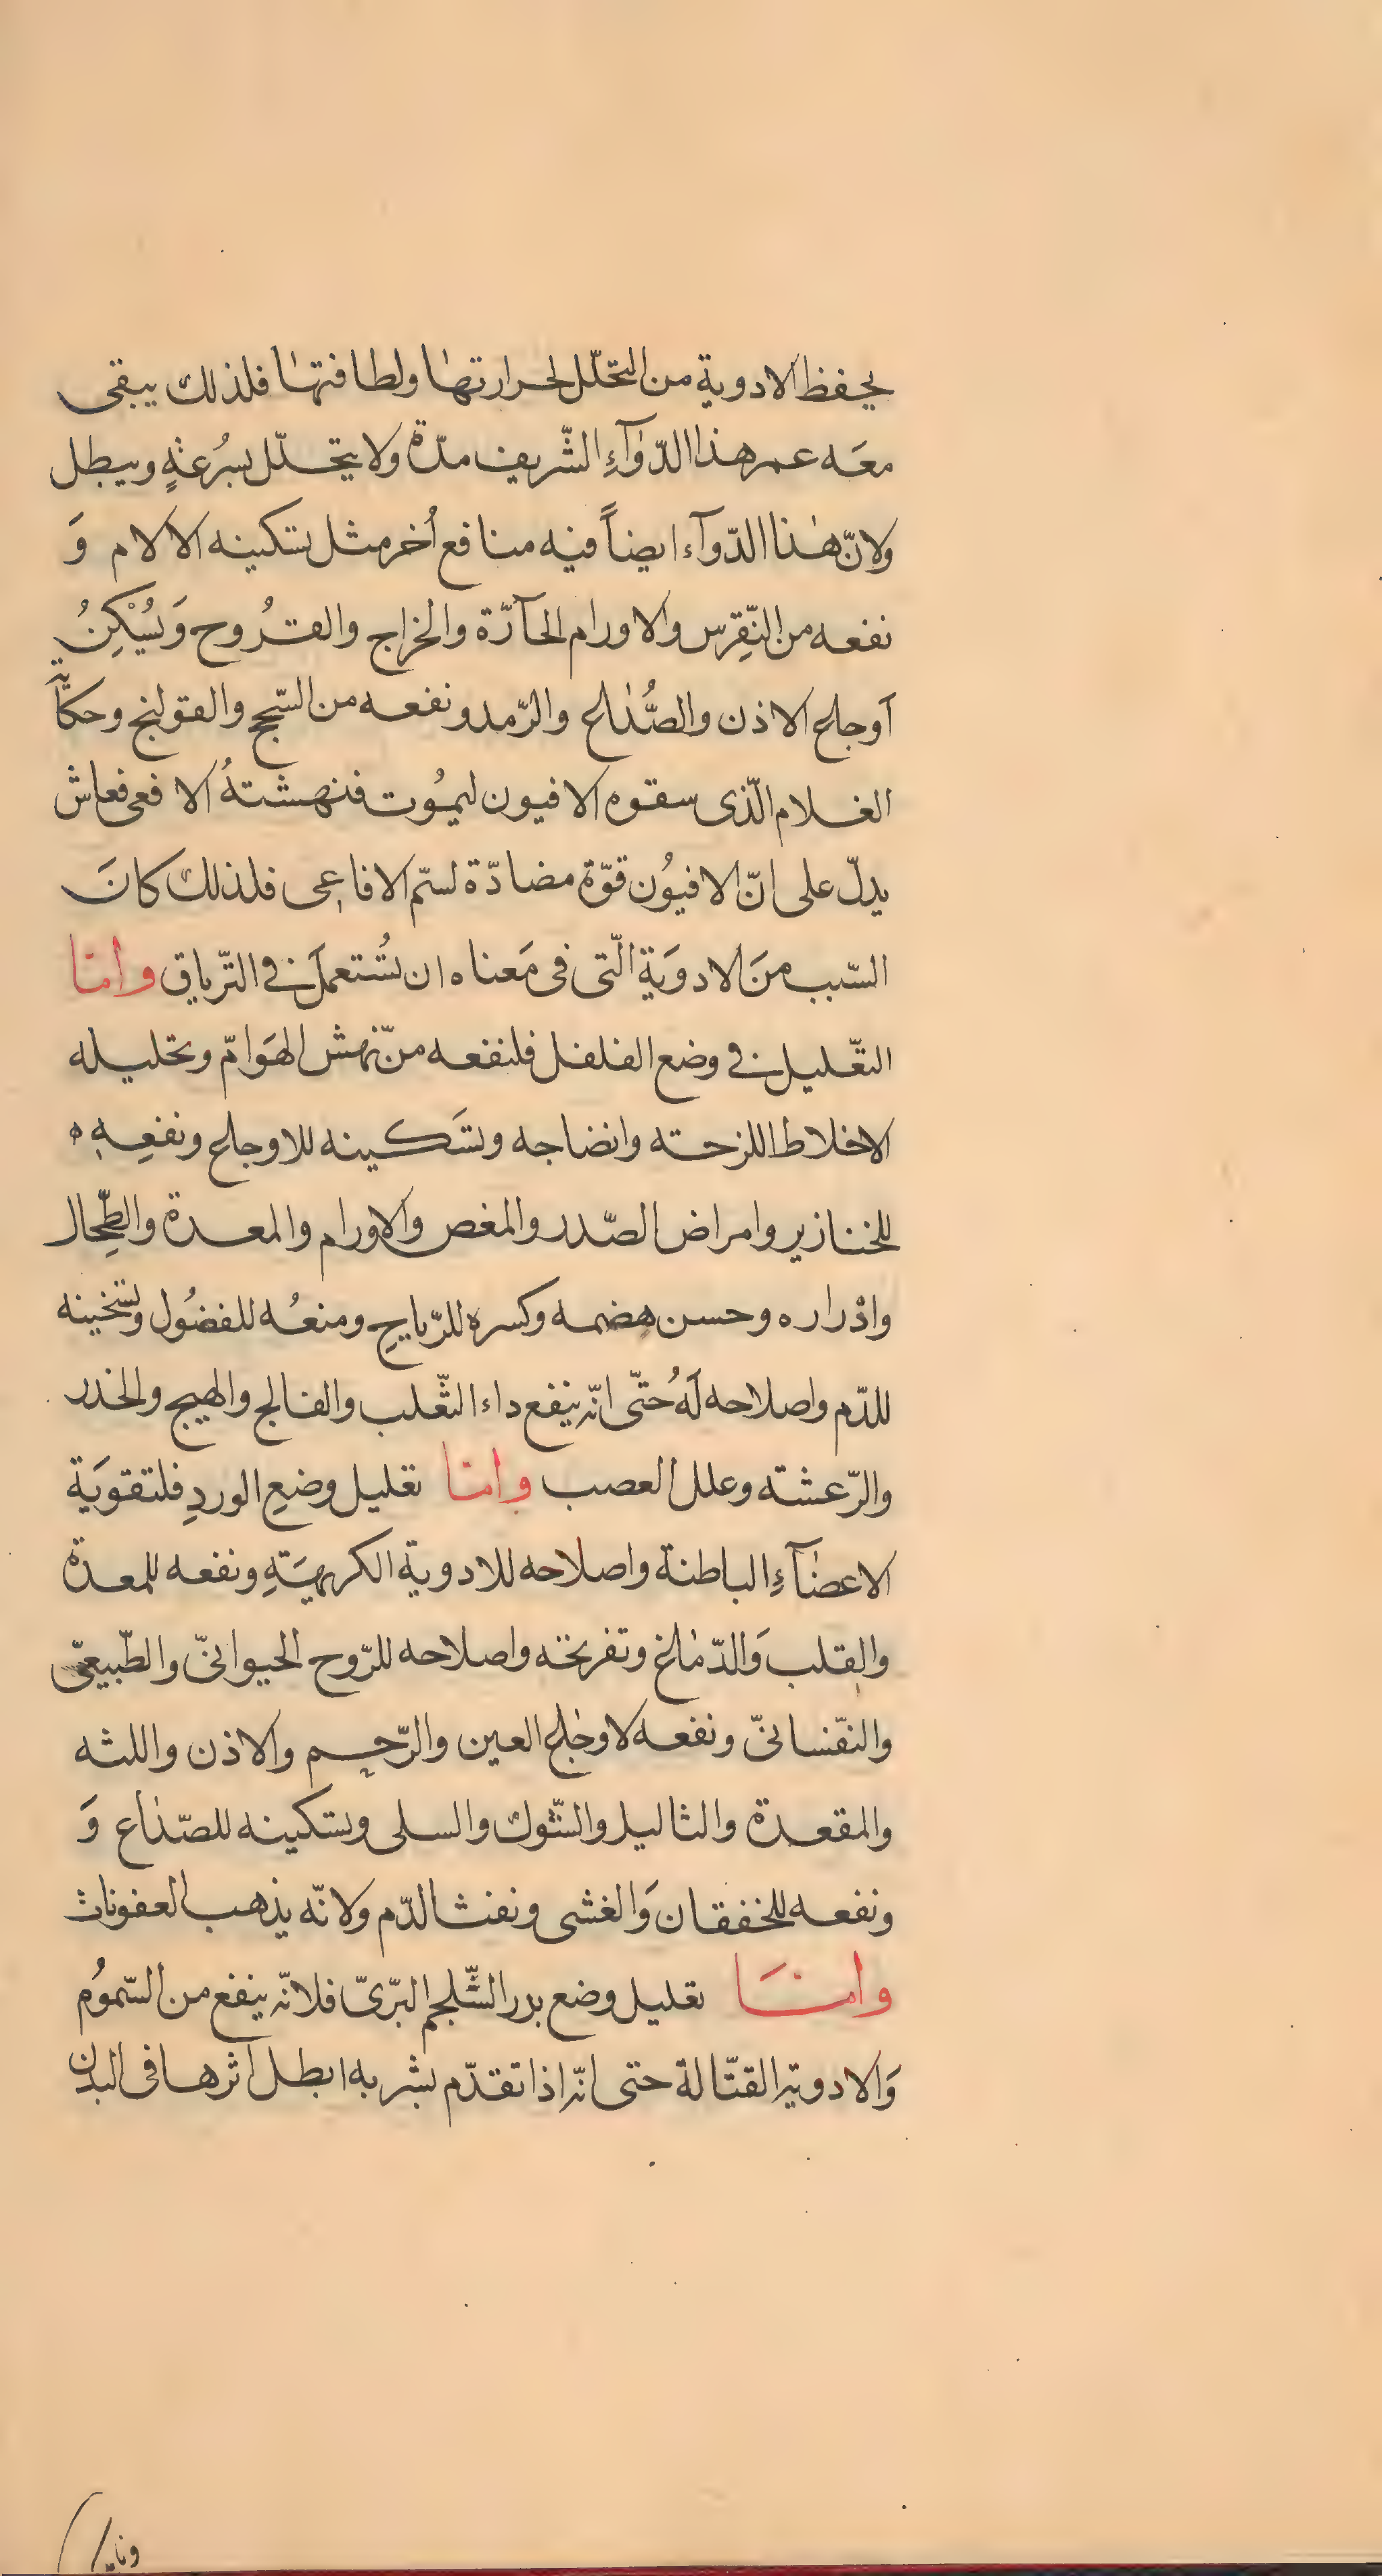 يحفظ الادوية من التحلّل لحرارتها ولطافتها فلذلك يبقى
معَه عمر هذا الدّوآءِ الشّريف مدّة ولا يتحلّل بسُرعةٍ ويبطل
ولانّ هٰذا الدّوآء ايضاً فيه منافع اُخر مثل تسكينه الالام وَ
نفعه من النّقِرس والاورام الحآرّة والخراج والقرُوح وَيُسْكِنُ
آوجاع الاذن والصُّداع والرّمد ونفعه من السّحج والقولنج وحكاية
الغلام الّذى سقوه الافيون ليمُوت فنهشتهُ الافعى فعاش
يدلّ على انّ الافيُون قوّة مضادّة لسّم الافاعى فلذلك كانَ
السّبب منَ الادويَة الّتى فى مَعناه ان تُستعمَل فى التّرياق وامّا
التعّليل فى وضع الفلفل فلنفعه من نّهش الهَوامّ وتحليله
الاخلاط اللزحته وانضاجه وتسَكينه للاوجاع ونفعِهِ ه
للخنازير وامراض الصّدر والمغص والاورام والمعدة والطِّحال
وادْراره وحسن هضمه وكسره للرّياحِ ومنعُه للفضُول وتسخينه
للدّم واصلاحه لَهُ حتّى انّه ينفع داء الثّعلب والفالج والهيج والخدر
والرّعشته وعلل العصب وامّا تعليل وضعِ الوردِ فلتقويَة
الاعضآءِ الباطنة واصلاحه للادوية الكريهيَةِ ونفعه للمعدة
والقلب وَالدّماغ وتفريحه واصلاحه للرّوح الحيوانىّ والطّبيعىّ
والنفّسانىّ ونفعه لاوجاع العين والرّحم والاذن واللثه
والمقعدة والثاليل والشّوك والسلى وتسكينه للصّداع وَ
ونفعه للخفقان وَالغشى ونفث الدّم ولانّه يذهب العفونات
وامّا تعليل وضع بدر الشّلجم البرّىّ فلانّه ينفع من السّمُوم
وَالادويَه القتّالة حتى انّه اذا تقدّم بشربه ابطل اثرها فى البدن